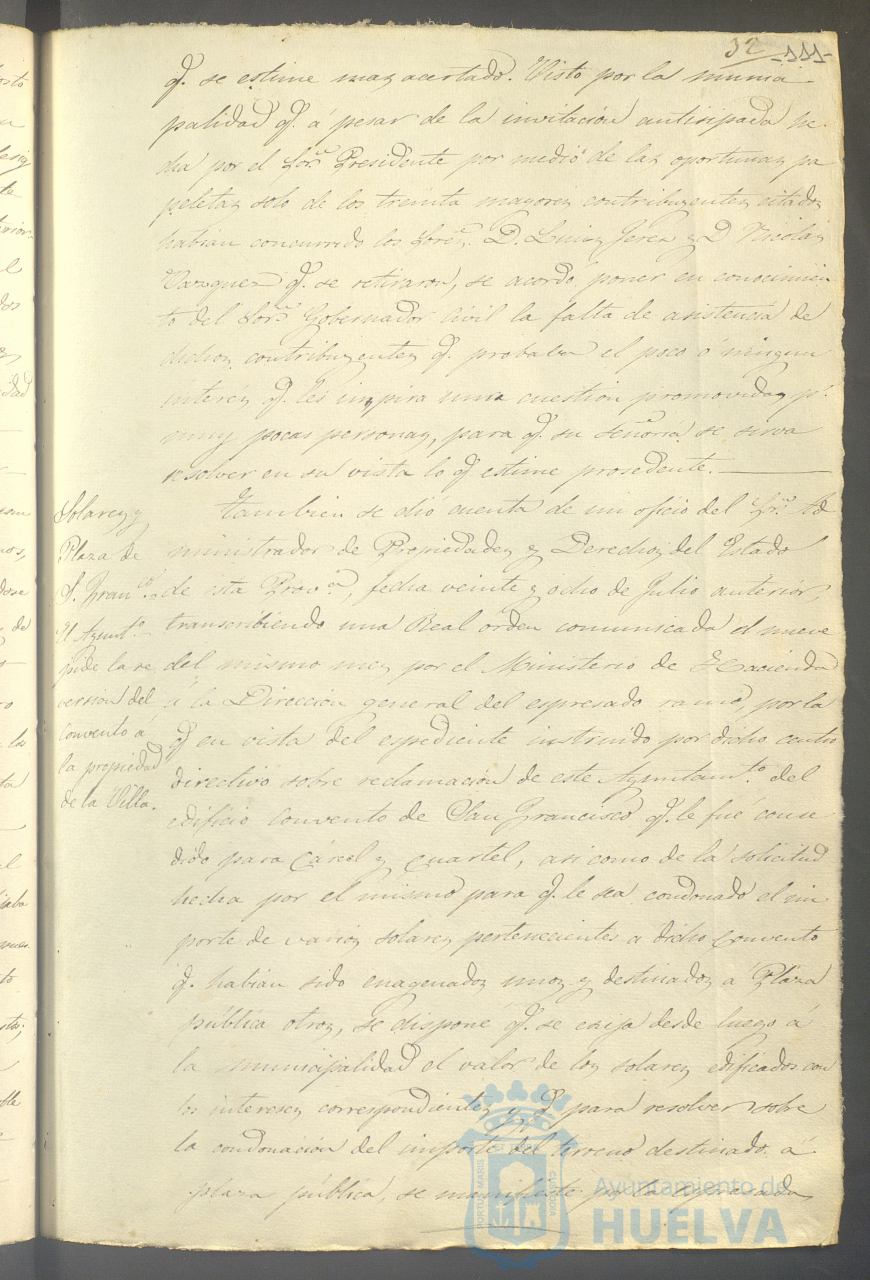 32 -111-
q.e se estime mas acertado. Visto por la munici
palidad q.e á pesar de la invitacion antisipada he
cha por el Sor. Presidente por medio de las oportunas pa
peletas solo de los treinta mayores contribuyentes citados
habian concurrido los Sores. D. Luis Jerez y D Nicolas
Vazquez q.e se retiraron, se acordo poner en conocimien
to del Sor. Gobernador Civil la falta de asistencia de
dichos contribuyentes q.e probaba el poco ó ningun
interes q.e les inspira una cuestion promovida p.r
muy pocas personas, para q.e su Señoria se sirva
resolver en su vista lo q.e estime prosedente.
Tambien se dió cuenta de un oficio del Sr. Ad
ministrador de Propiedades y Derechos del Estado
de esta Prov.a, fecha veinte y ocho de Julio anterior,
transcribiendo una Real órden comunicada el nueve
del mismo mes por el Ministerio de Hacienda
á la Direccion general del espresado ramo, por la
q.e en vista del espediente instruido por dicho centro
directivo sobre reclamacion de este Ayuntam.to del
edificio Convento de San Francisco q.e le fué conce
dido para Cárcel y cuartel, asi como de la solicitud
hecha por el mismo para q.e le sea condonado el im
porte de varios solares pertenecientes a dicho convento
q.e habian sido enagenados unos y destinados a Plaza
pública otros, se dispone q.e se exija desde luego á
la municipalidad el valor de los solares edificados con
los intereses correspondientes y q.e para resolver sobre
la condonacion del importe del terreno destinado á
plaza pública, se manifieste por la espresada
Solares y
Plaza de
S. Fran.co
El Ayunt.o
pide la re
version del
Convento á
la propiedad
de la Villa.
PORTUS MARIS
CUSTODIA
Ayuntamiento de
HUELVA